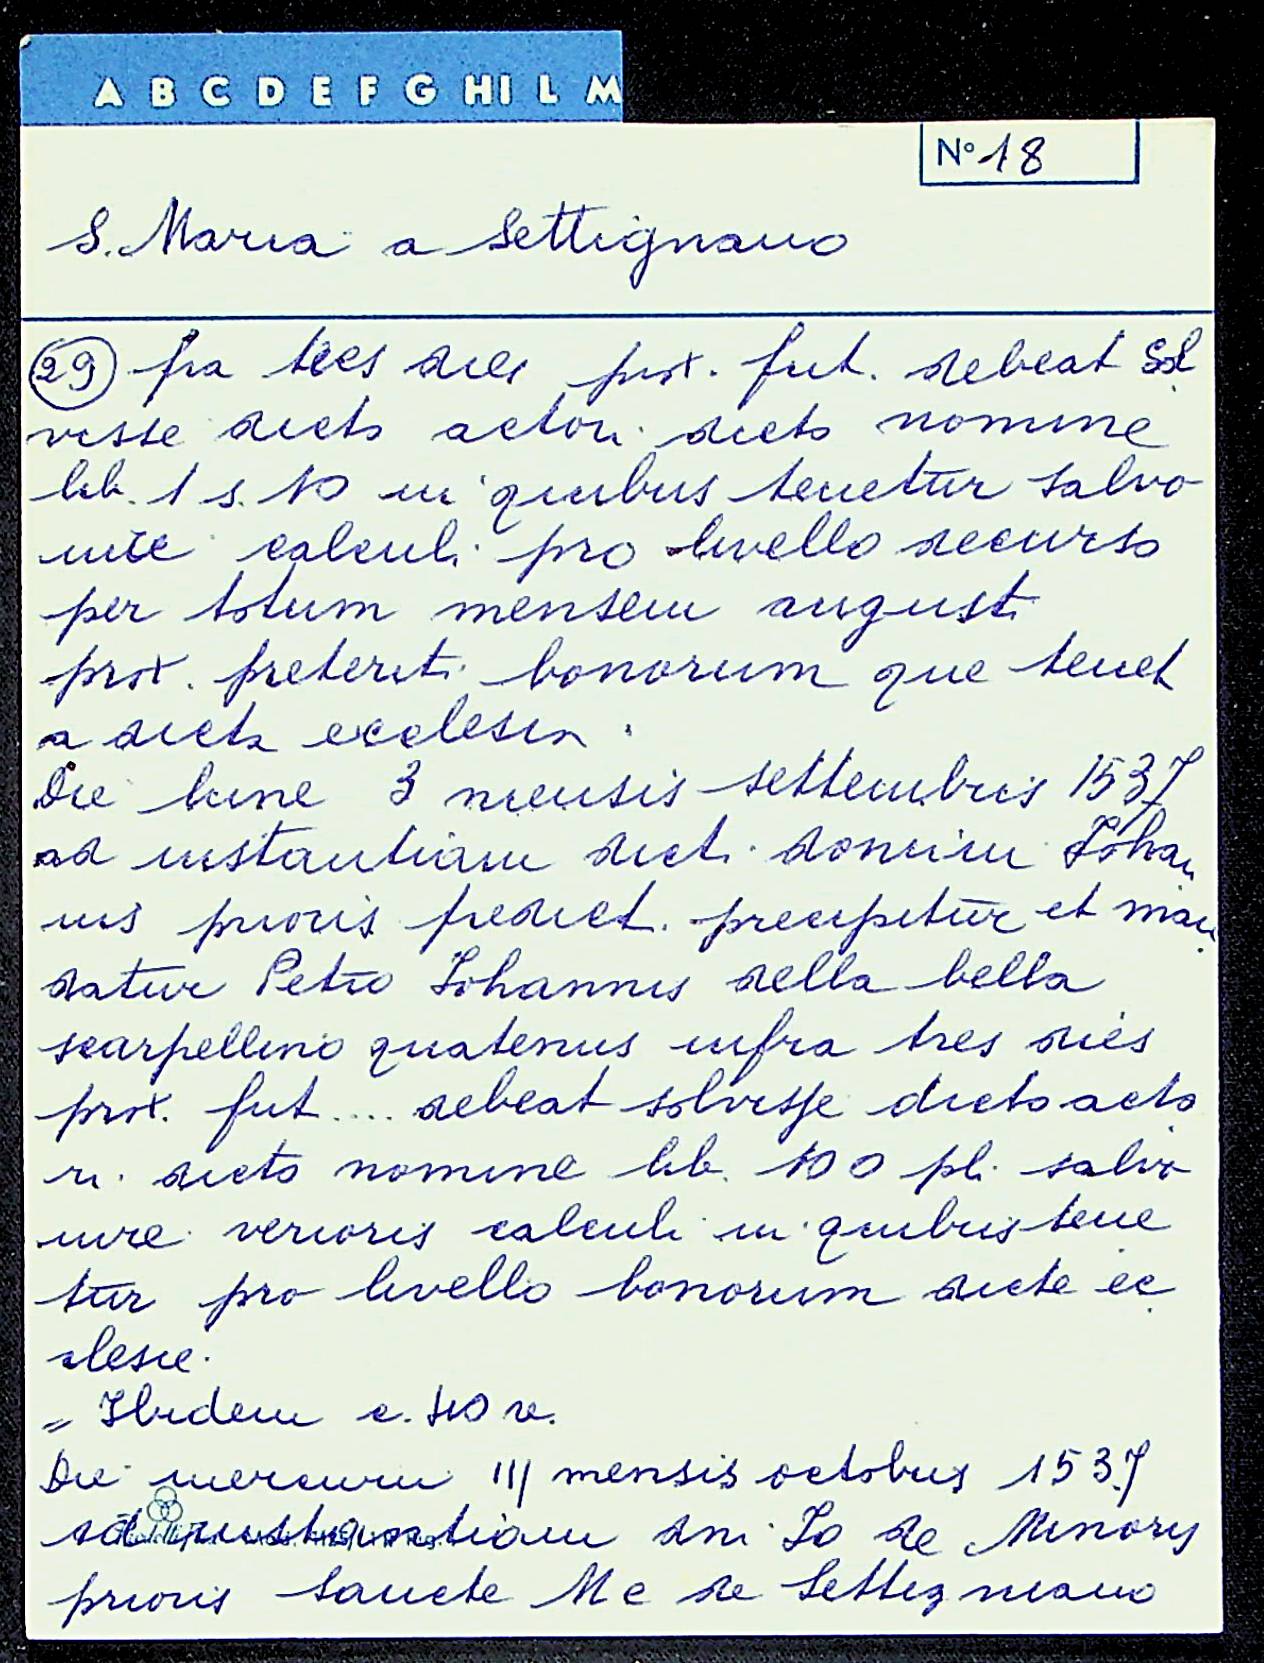 A B C D E F G HI L M
N° 18
S. Maria a Settignano
(29) fra tres dies prox. fut. debeat sol
visse dicto actori dicto nomine
lib. 1 s. 10 in quibus tenetur salvo
iure calculi pro livello decurso
per totum mensem augusti
prox. preteriti bonorum que tenet
a dicta ecclesia.
Die lune 3 mensis settembris 1537
ad instantiam dicti domini Johan
nis prioris predict. precipitur et man
datur Petro Johannis della bella
scarpellino quatenus infra tres dies
prox. fut.... debeat solvisse dicto acto
ri dicto nomine lib. 100 pl. salvo
iure verioris calculi in quibus tene
tur pro livello bonorum dicte ec
clesie.
" Ibidem c. 40 v.
Die mercurii III mensis octobris 1537
ad instantiam dni Jo de Minoris
prioris Sancte Me de Settignano